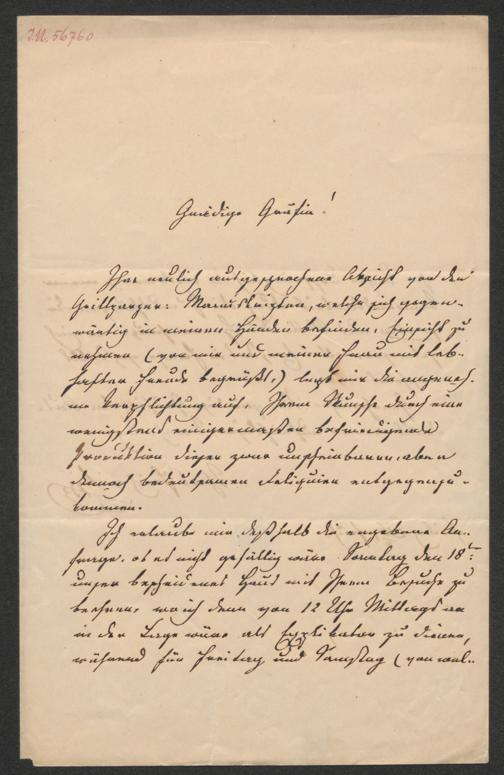 I.N. 56760
Gnädige Gräfin!
Ihre neulich ausgesprochene Absicht von den
Grillparzer-Manuskripten, welche sich gegen-
wärtig in meinen Händen befinden, Einsicht zu
nehmen (von mir und meiner Frau mit leb-
hafter Freude begrüßt,) legt mir die angeneh-
me Verpflichtung auf, Ihrem Wunsche durch eine
wenigstens einigermaßen befriedigende
Produktion dieser zwar unscheinbaren, aber
dennoch bedeutsamen Reliquien entgegenzu-
kommen.
Ich erlaube mir deßhalb die ergebene An-
frage, ob es nicht gefällig wäre Sonntag den 18ten
unser bescheidenes Haus mit Ihrem Besuche zu
beehren, wo ich denn von 12 Uhr Mittags an
in der Lage wäre als Explikator zu dienen,
während für Freitag und Samstag (von wel-